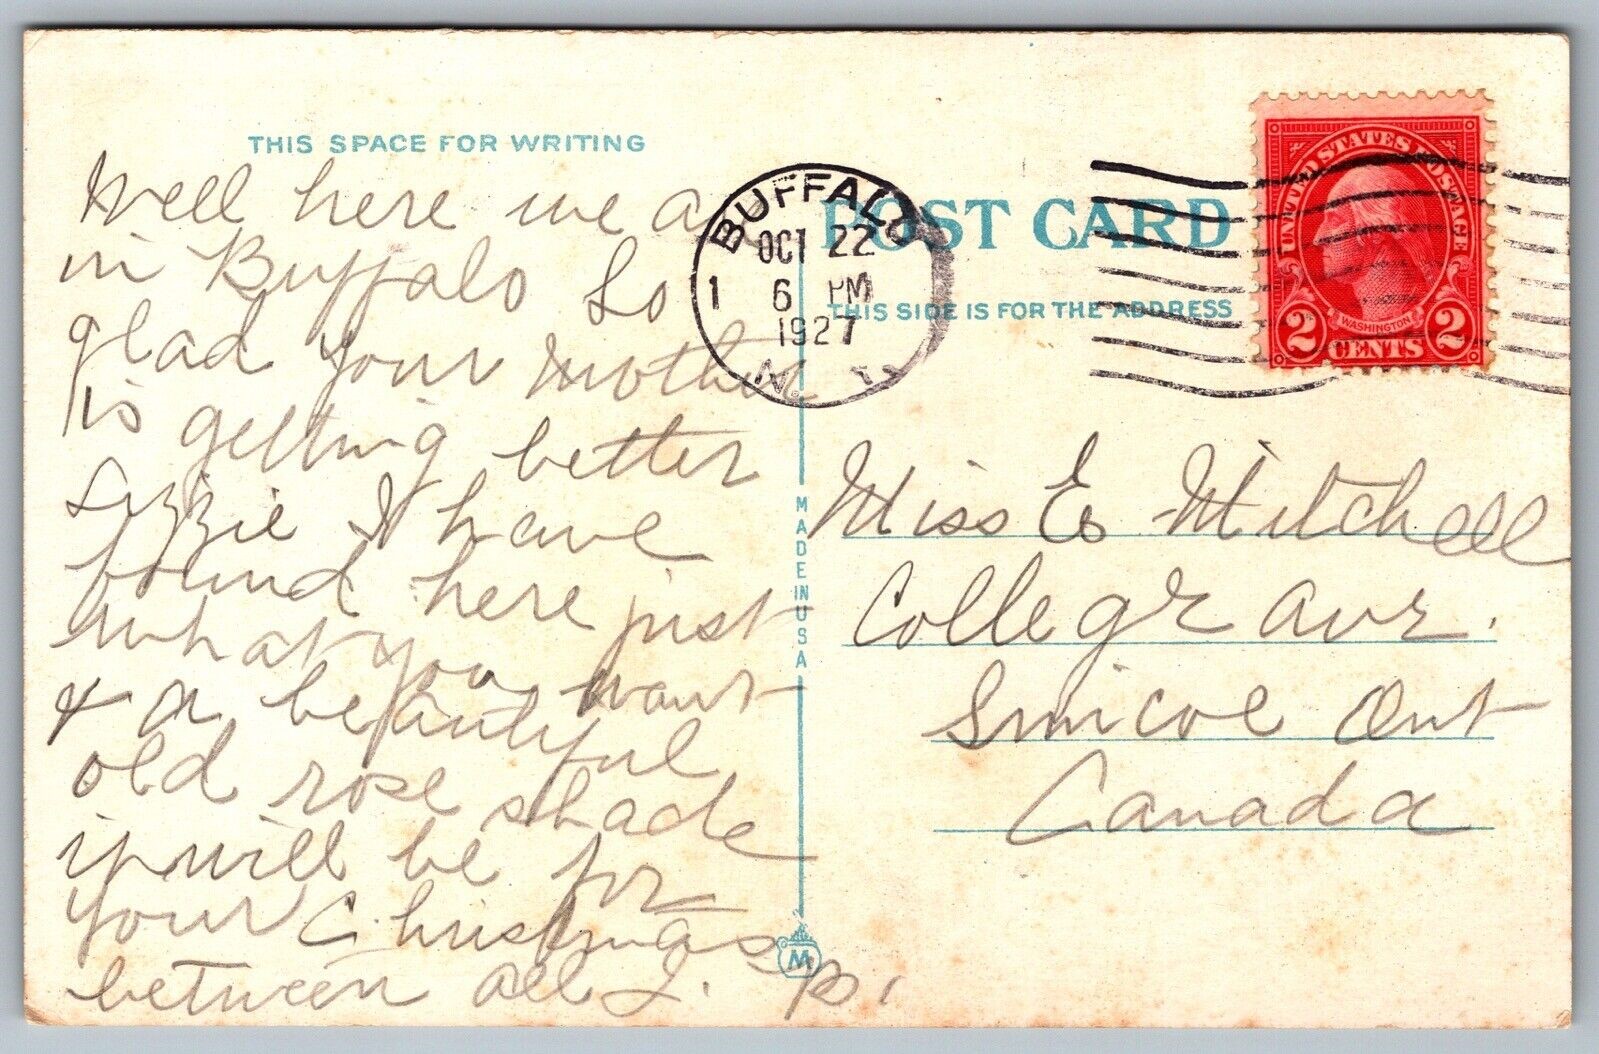 THIS SPACE FOR WRITING
Well here we are
in Buffalo So
glad your Mother
is getting better
Lizzie I have
found here just
what you want
& a beautiful
old rose shade
it will be for
your Christmas
between all
BUFFALO
OCT 22
1 6 PM
1927
N. Y.
POST CARD
THIS SIDE IS FOR THE ADDRESS
UNITED STATES POSTAGE
WASHINGTON
2 CENTS 2
MADE IN USA
M
Miss E Mitchell
College Ave.
Simcoe Ont
Canada